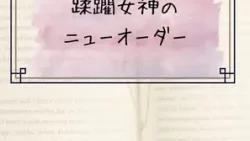 蹂躙女神の
ニューオーダー